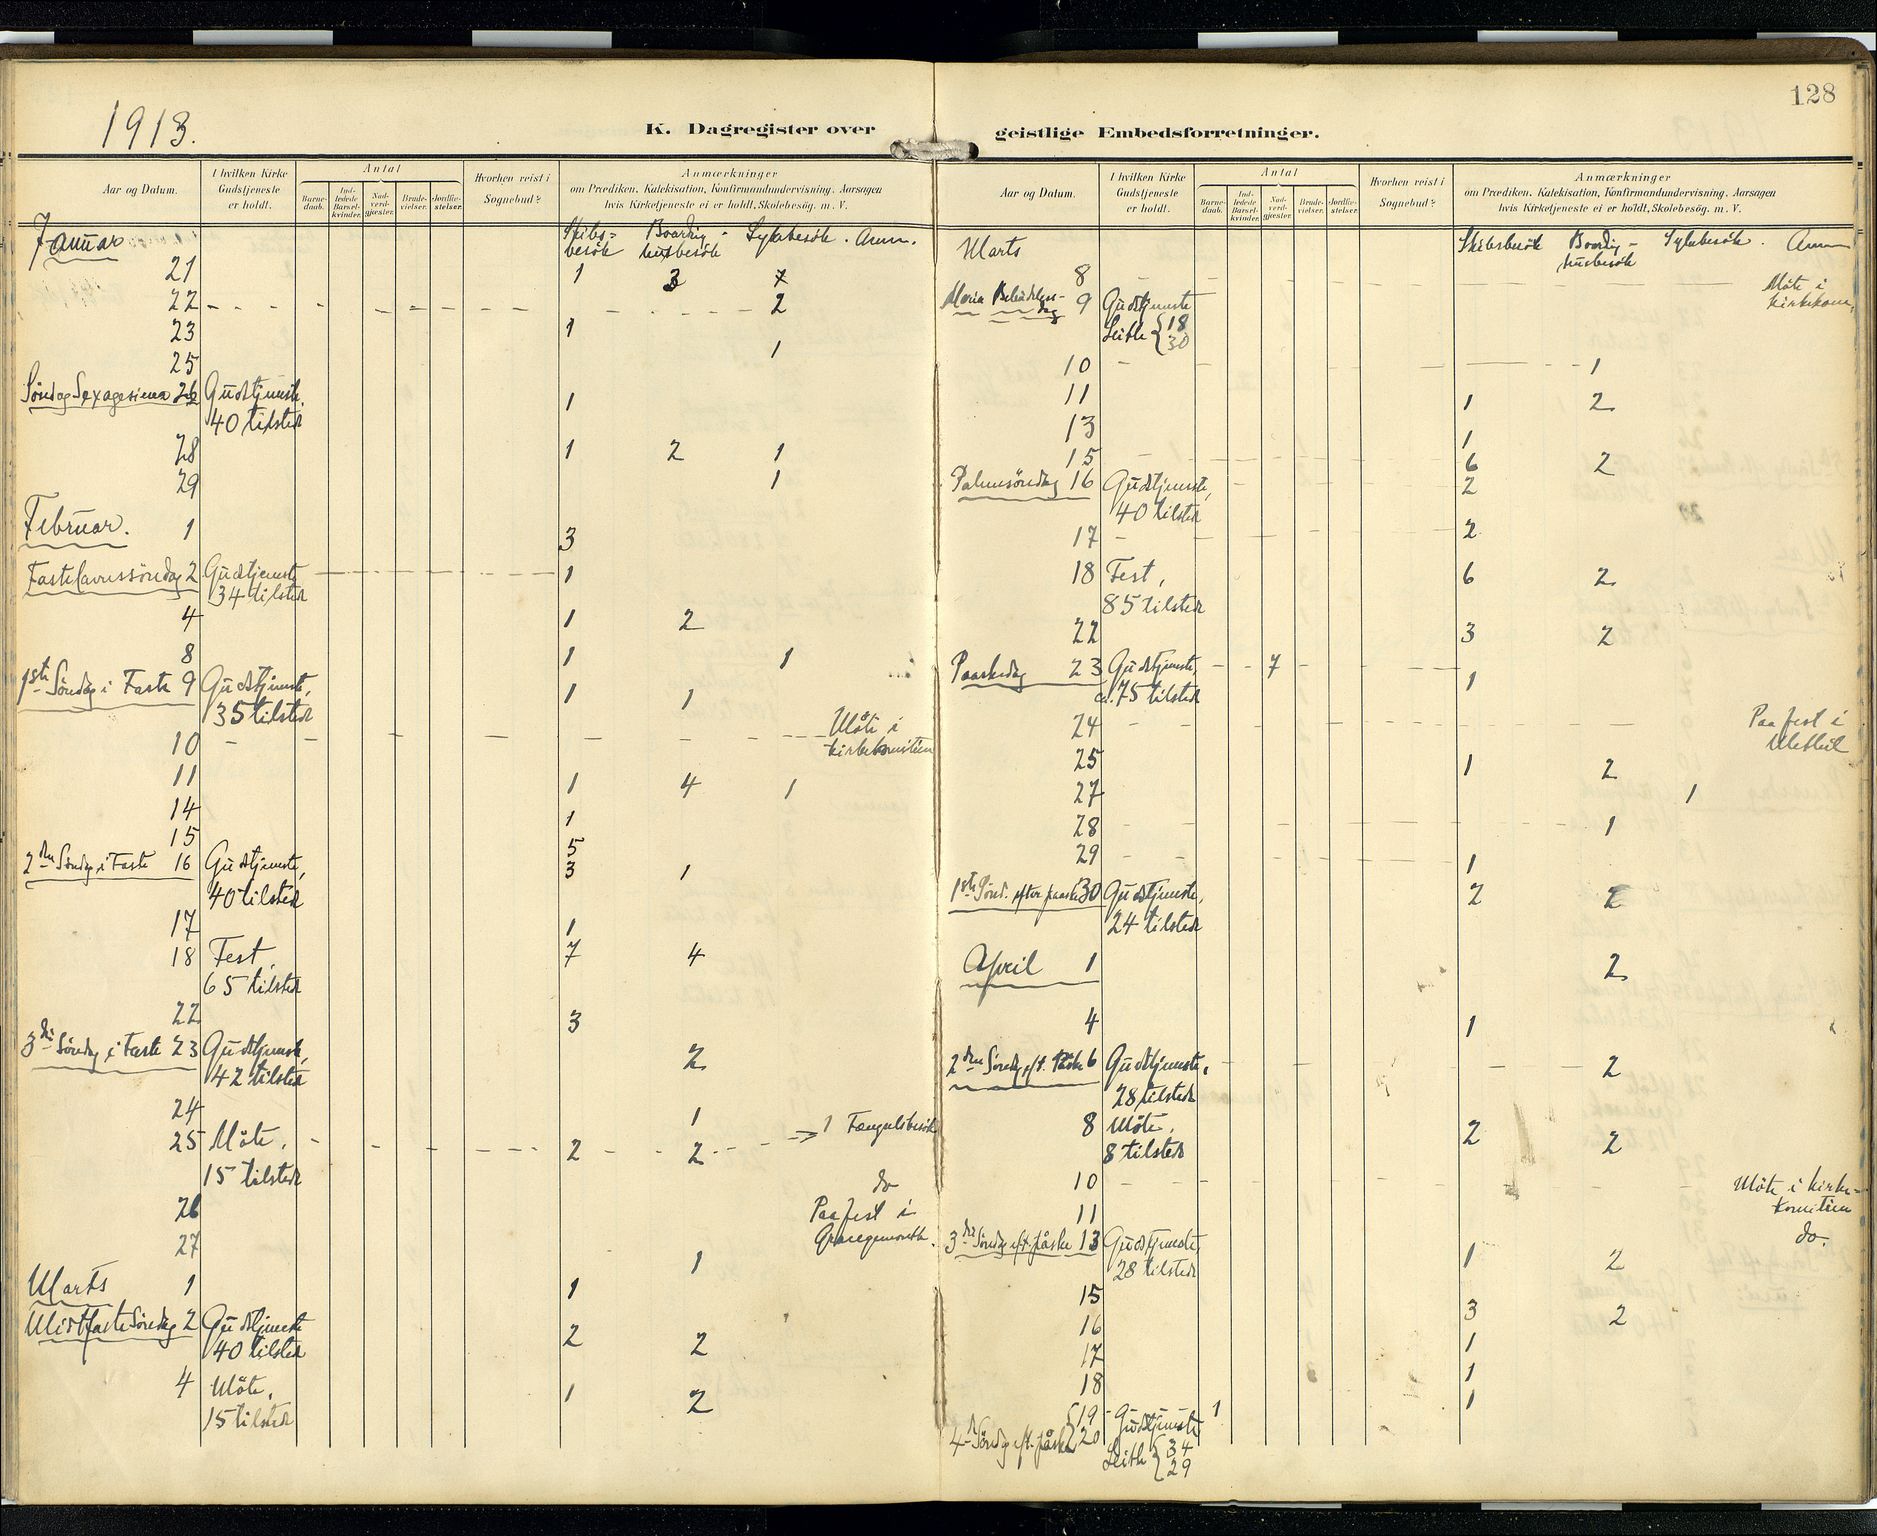 1913.
K. Dagregister over
Aar og Datum.
I hvilken Kirke Gudstjeneste er holdt.
Antal
Barnedaab.
Indledede Barselkvinder.
Nadverdgjester.
Brudevielser.
Jordfæstelser.
Hvorhen reist i Sognebud?
Anmærkninger
om Prædiken, Katekisation, Konfirmandundervisning, Aarsagen
hvis Kirketjeneste ei er holdt, Skolebesøg. m. V.
Januar Skibsbesök Boardinghusbesök Sykebesök. Anm.
21 1 3 7
22 2
23 1
25 1
Söndag Sexagesima 26 Gudstjeneste. 1
40 tilstede
28 1 2 1
29 1
Februar. 1 3
Fastelavnssöndag 2 Gudstjeneste 1
34 tilstede
4 1 2
8 1 1
1ste Söndag i Faste 9 Gudstjeneste, 1 1
35 tilstede
10 Möte i kirkekomitien
11 1 4 1
14 1
15 5
2den Söndag i Faste 16 Gudstjeneste, 3 1
40 tilstede
17 1
18 Fest, 7 4
65 tilstede
22 3
3die Söndag i Faste 23 Gudstjeneste, 2
42 tilstede
24 1
25 Möte, 2 2 1 Fængselsbesök
15 tilstede
26 do
Paa fest i
Grangemouth.
27 1
Marts 1 1
Midtfaste Söndag 2 Gudstjeneste 2 2
40 tilstede
4 Möte, 1 2
15 tilstede
128
geistlige Embedsforretninger.
Aar og Datum.
I hvilken Kirke Gudstjeneste er holdt.
Antal
Barnedaab.
Indledede Barselkvinder.
Nadverdgjester.
Brudevielser.
Jordfæstelser.
Hvorhen reist i Sognebud?
Anmærkninger
om Prædiken, Katekisation, Konfirmandundervisning, Aarsagen
hvis Kirketjeneste ei er holdt, Skolebesøg. m. V.
Marts Skibsbesök Boardinghusbesök Sykebesök. Anm
8 Möte i kirkekom.
Maria Bebudelsesdag 9 Gudstjeneste
Leith { 18
30
10 1
11 1 2
13 1
15 6 2
Palmesöndag 16 Gudstjeneste, 2
40 tilstede
17 2
18 Fest, 6 2
85 tilstede
22 3 2
Paaskedag 23 Gudstjeneste, 7 1
ca. 75 tilstede
24 Paa fest i
Methil
25 1 2
27 1
28 1
29 1
1ste Sönd. efter paaske 30 Gudstjeneste, 2 2
24 tilstede
April 1 2
4 1
2den Söndag eft. Påske 6 Gudstjeneste. 2
28 tilstede
8 Möte, 2 2
8 tilstede
10 Möte i kirkekomitien
11 do.
3die Söndag eft. påske 13 Gudstjeneste, 1 2
28 tilstede
15 3 2
16 1
17 1
18 1
19 1
4de Söndag eft. påske 20 Gudstjeneste
Leith { 34
29